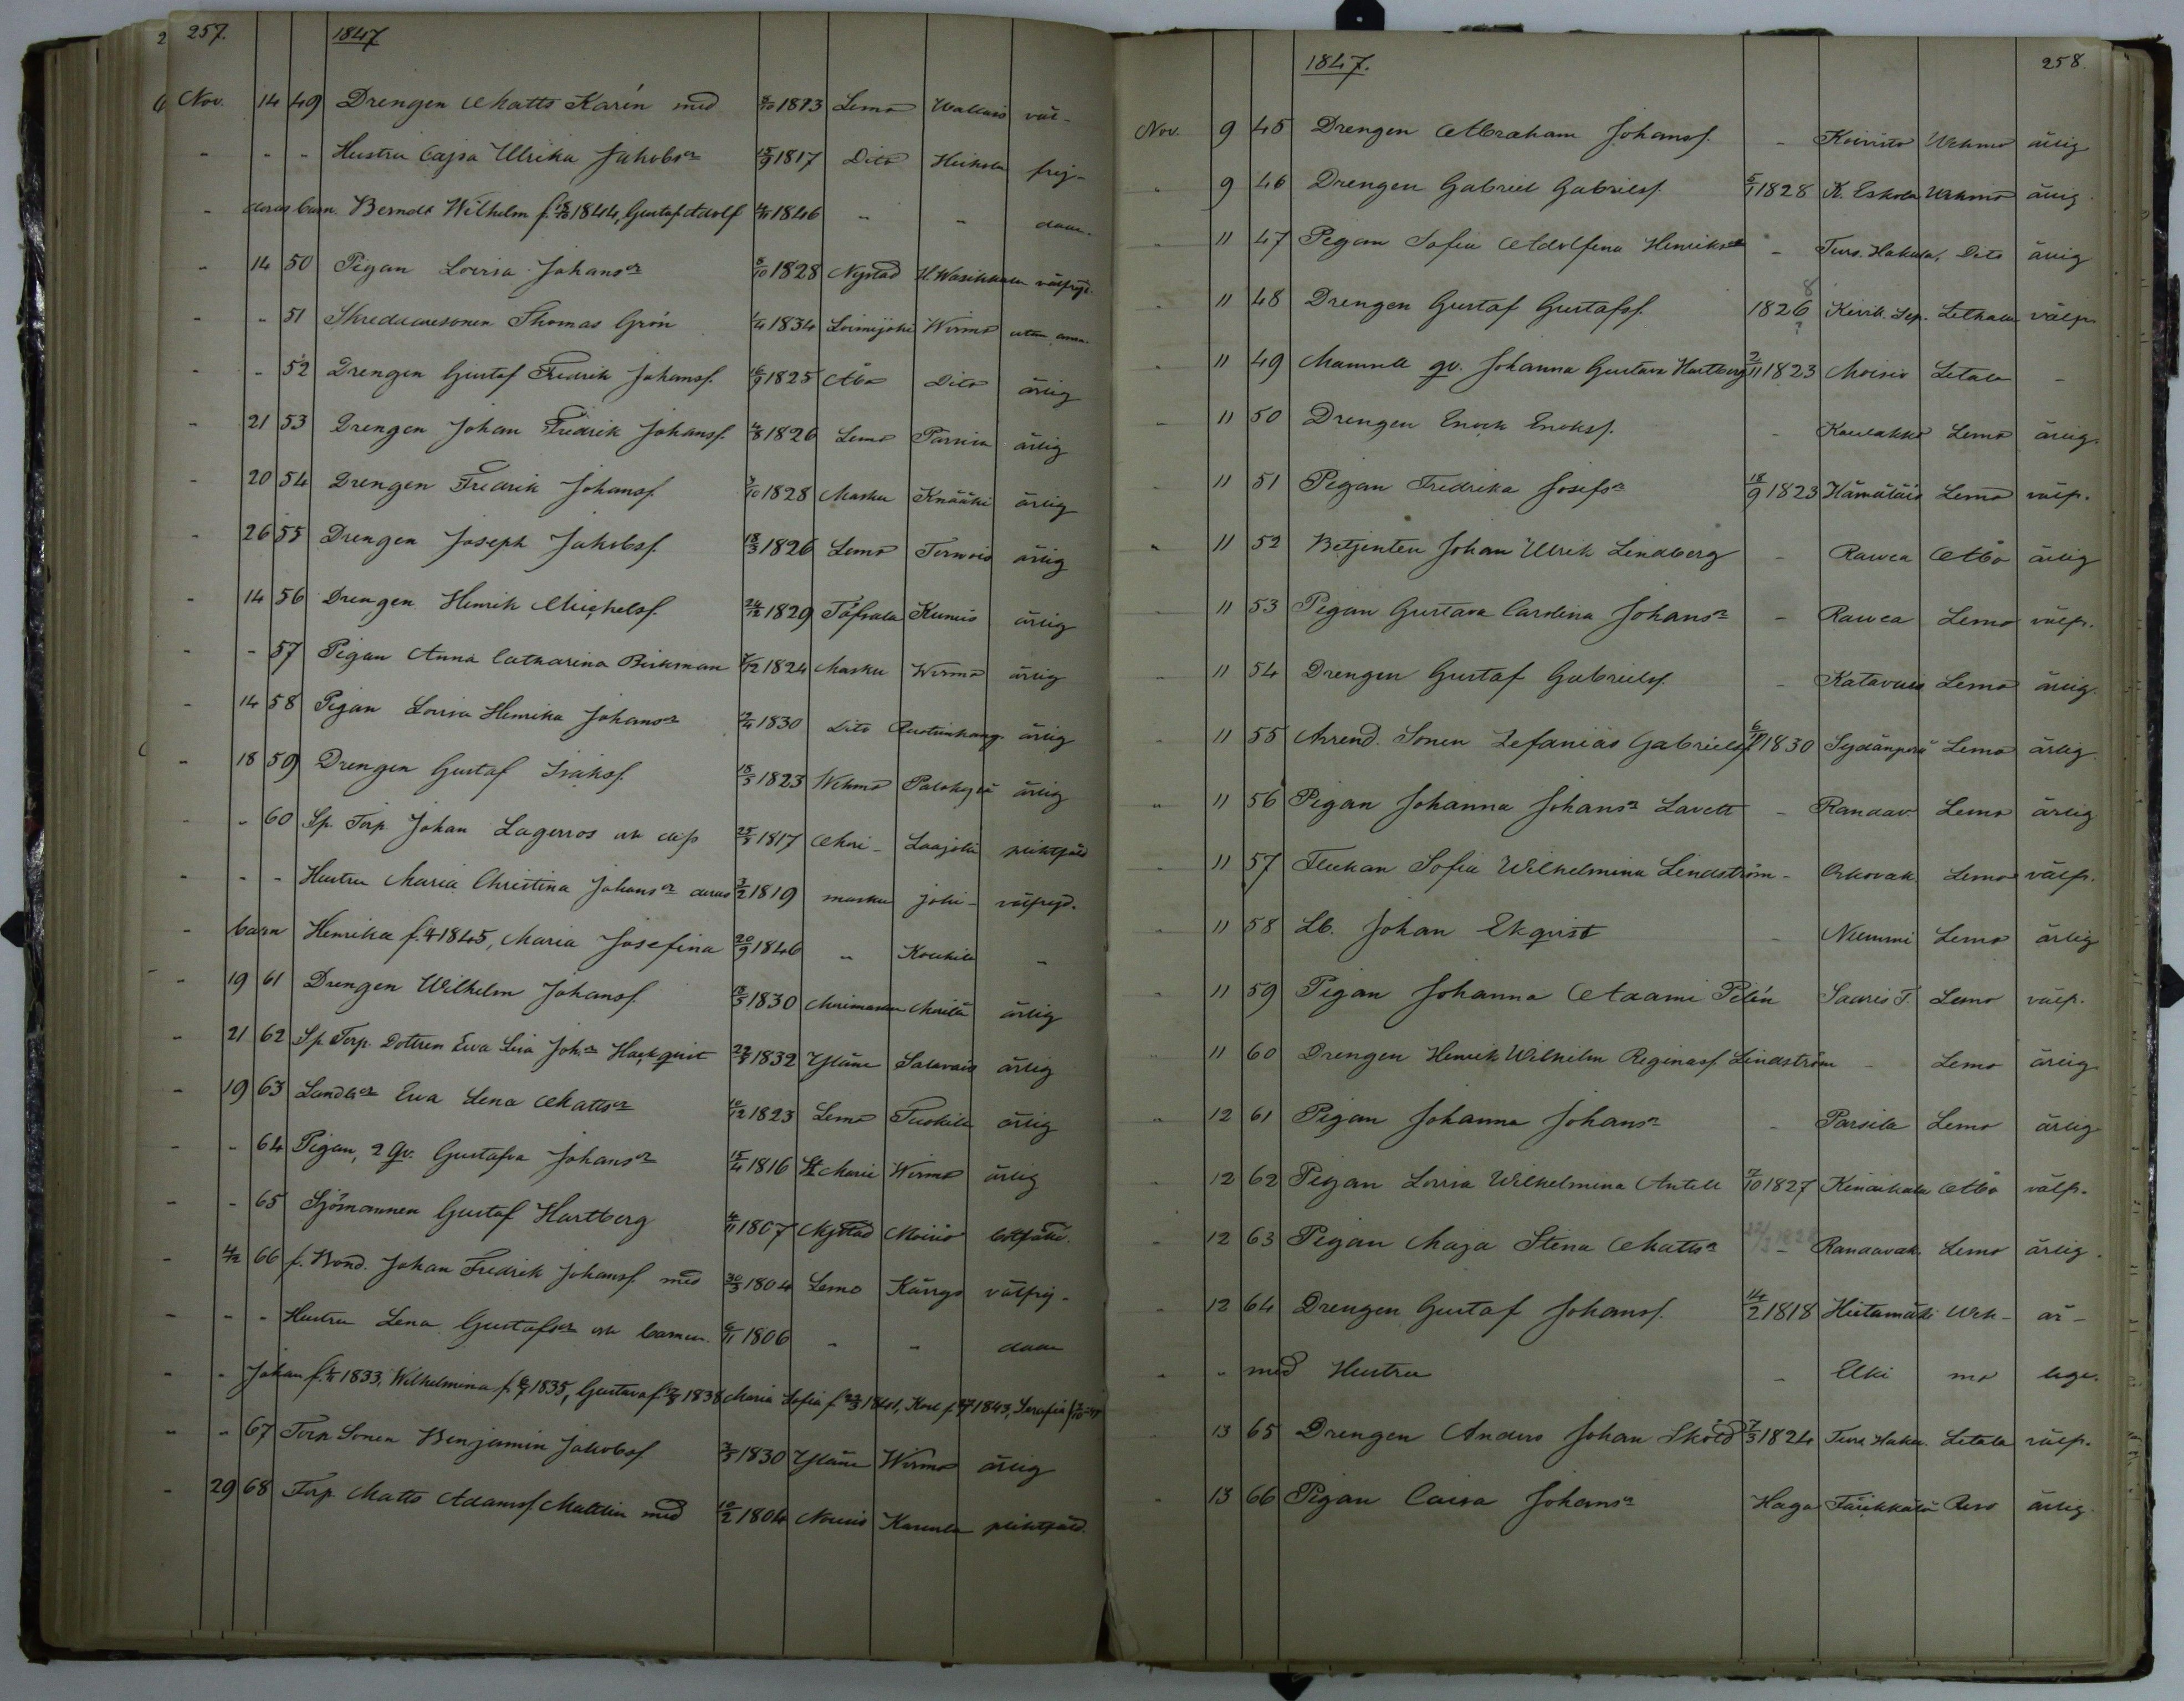 257. 1847
Nov. 14 49 Drengen Matts Karén med 1823 Lemo Wallais väl-
" " " Hustru Cajsa Ulrika Jakobsdr 15/9 1817 Dito Heikola frej-
" deras barn. Berndt Wilhelm f. 1844, Gustaf Adolf 1846 " " dade.
" 14 50 Pigan Lovisa Johansdr 8/10 1828 Nystad H. Wasikkala välfrejd.
" " 51 Skreddaresonen Thomas Grön 1/4 1834 Loimijoki Wirmo utan
" " 52 Drengen Gustaf Fredrik Johansf. 16/9 1825 Åbo Dito ärlig
" 21 53 Drengen Johan Fredrik Johansf. 4/8 1826 Lemo Parsica ärlig
" 20 54 Drengen Fredrik Johansf. 3/10 1828 Masku Knääki ärlig
" 26 55 Drengen Joseph Jakobsf. 18/3 1826 Lemo Terwois ärlig
" 14 56 Drengen Henrik Michelsf. 24/12 1829 Töfsala Kunnis ärlig
" " 57 Pigan Anna Catharina Birkman 7/12 1824 Masku Wirmo ärlig
" 14 58 Pigan Lovisa Henrika Johansdr 1830 Dito Ruotsinkang. ärlig
" 18 59 Drengen Gustaf Isaksf. 18/3 1823 Wehmo Palokylä ärlig
" " 60 Sp. Torp. Johan Lagerros 1817 Mari- Laajoki pliktfäld
" " " Hustru Maria Christina Johansdr deras 3/2 1819 masku joki- välfrejd.
" barn Henrika f. 1845, Maria Josefina 20/9 1846 " Koukila "
" 19 61 Drengen Wilhelm Johansf. 1830 Marimasku Marila ärlig
" 21 62 Sp. Torp. Dottren Ewa Lisa Joh.dr Hackqvist 1832 Yläne Salavais ärlig
" 19 63 Landb.dr Ewa Lena Mattsdr 10/12 1823 Lemo Tuokila ärlig
" " 64 Pigan, 2 Qv. Gustafva Johansdr 15/4 1816 St Marie Wirmo ärlig
" " 65 Sjömannen Gustaf Hartberg 4/11 1807 Nystad Moisio
" 66 f. Bond. Johan Fredrik Johansf. med 30/3 1804 Lemo Kärrys välfrej-
" " " Hustru Lena Gustafsdr och barnen. 6/11 1806 " " dade
" " Johan f. 1833, Wilhelmina f. 1835, Gustava f. 1838 Maria Sofia f. 22/3 1841, Karl f. 1843, Serafia
" " 67 Torp. Sonen Benjamin Jakobsf. 1830 Yläne Wirmo ärlig
" 29 68 Torp. Matts Adamsf. Mattlin med 10/2 1804 Nousis Karenla pliktfäld.
1847. 258.
Nov. 9 45 Drengen Abraham Johansf. - Koivisto Wehmo ärlig
" 9 46 Drengen Gabriel Gabrielsf. 5/1 1828 K. Eskola Wehmo ärlig
" 11 47 Pigan Sofia Adolfena Henriksdr - Turs. Hakula. Dito ärlig
" 11 48 Drengen Gustaf Gustafsf. 1826 8 ? Kirik. Sep. Lethala välfr.
" 11 49 Mamsell qv. Johanna Gustava Hartberg 2/11 1823 Moisio Letala -
" 11 50 Drengen Enock Enoksf. - Koulakko Lemo ärlig.
" 11 51 Pigan Fredrika Josefsdr 18/9 1823 Hämäläis Lemo välfr.
" 11 52 Betjenten Johan Ulrik Lindberg - Rawea Åbo ärlig
" 11 53 Pigan Gustava Carolina Johansdr - Rawea Lemo välfr.
" 11 54 Drengen Gustaf Gabrielsf. - Katavais Lemo ärlig.
" 11 55 Arrend. Sonen Zefanias Gabrielsf. 1830 Sydänperä Lemo ärlig.
" 11 56 Pigan Johanna Johansdr Lavett - Randav. Lemo ärlig
" 11 57 Flickan Sofia Wilhelmina Lindström - Orkovak. Lemo välfr.
" 11 58 Lb. Johan Ekqvist - Nummi Lemo ärlig
" 11 59 Pigan Johanna Adami Pelén Sauris T. Lemo välfr.
" 11 60 Drengen Henrik Wilhelm Reginasf. Lindström - Lemo ärlig
" 12 61 Pigan Johanna Johansdr - Parsila Lemo ärlig
" 12 62 Pigan Lovisa Wilhelmina Antell 7/10 1827 Kinaikala Åbo välfr.
" 12 63 Pigan Maja Stina Mattsdr - Randavak. Lemo ärlig.
" 12 64 Drengen Gustaf Johansf. 14/2 1818 Hiitamäki Weh- är-
" " med Hustru - Elki mo lige.
" 13 65 Drengen Anders Johan Sköld 7/3 1824 Turs Haku. Letala välfr.
" 13 66 Pigan Caisa Johansdr Haga Täikkälä Reso ärlig.